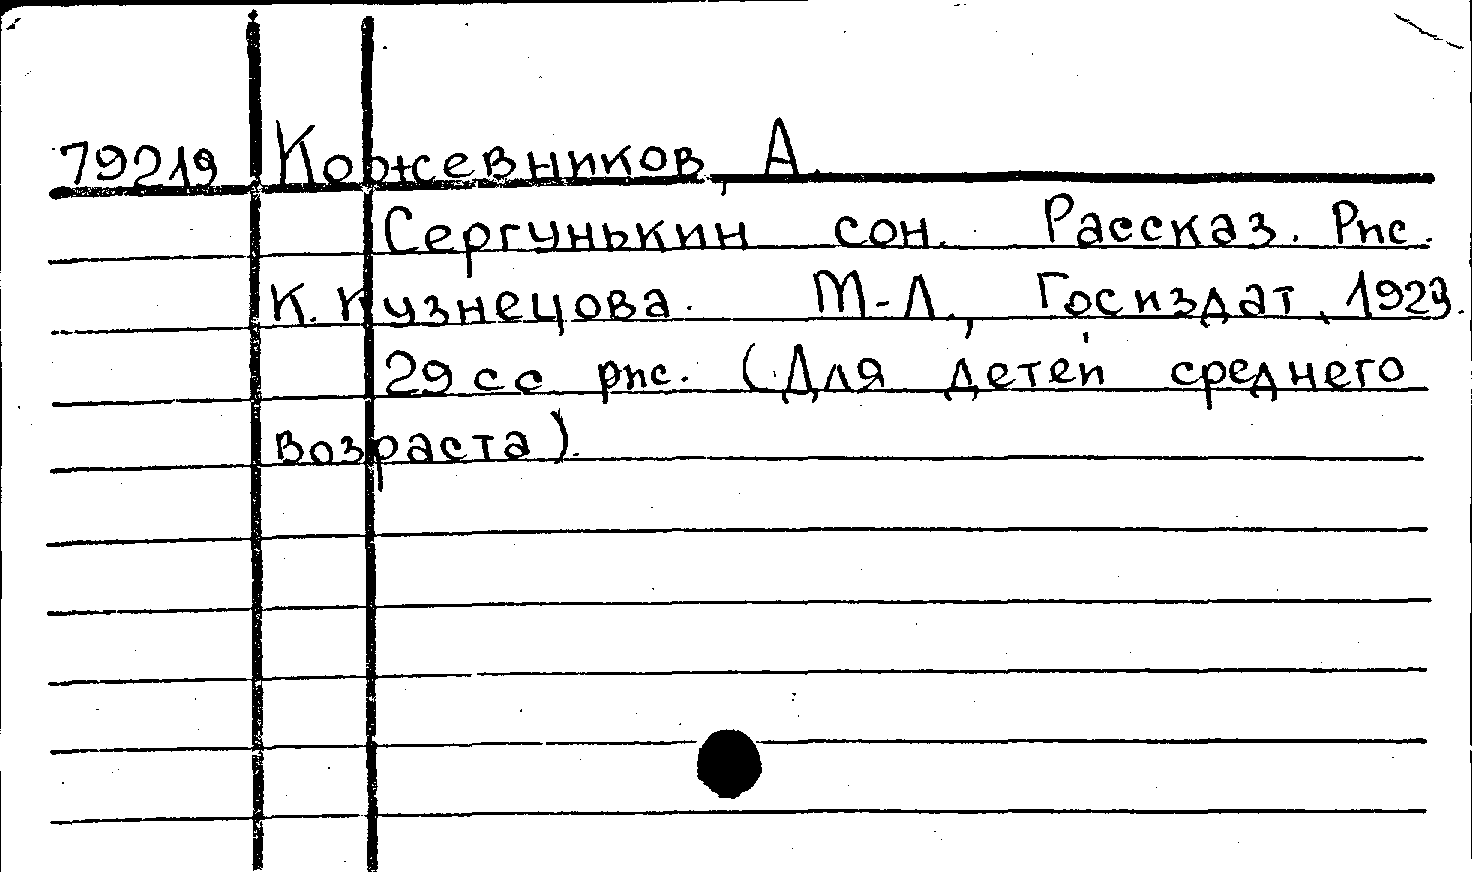 79219 Кожевников, А.
Сергунькин сон. Рассказ. Рис.
К. Кузнецова. М-Л., Госиздат, 1929.
29 сс рис. (Для детей среднего
возраста).